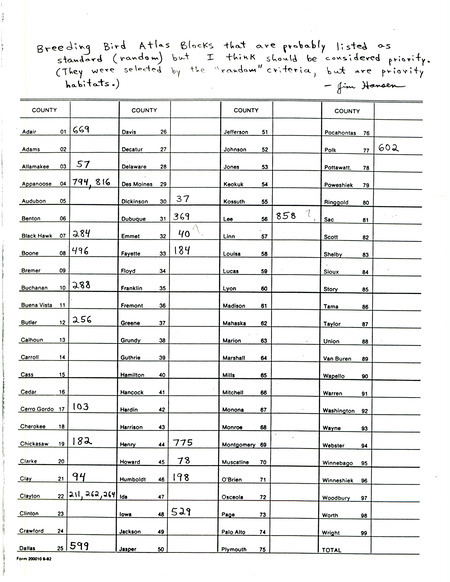 Breeding Bird Atlas Blocks that are probably listed as
standard (random) but I think should be considered priority.
(They were selected by the "random" criteria, but are priority
habitats.)
— Jim Hansen
COUNTY COUNTY COUNTY COUNTY
Adair 01 669 Davis 26 Jefferson 51 Pocahontas 76
Adams 02 Decatur 27 Johnson 52 Polk 77 602
Allamakee 03 57 Delaware 28 Jones 53 Pottawatt. 78
Appanoose 04 794, 816 Des Moines 29 Keokuk 54 Poweshiek 79
Audubon 05 Dickinson 30 37 Kossuth 55 Ringgold 80
Benton 06 Dubuque 31 369 Lee 56 858 ? Sac 81
Black Hawk 07 284 Emmet 32 40 Linn 57 Scott 82
Boone 08 496 Fayette 33 184 Louisa 58 Shelby 83
Bremer 09 Floyd 34 Lucas 59 Sioux 84
Buchanan 10 288 Franklin 35 Lyon 60 Story 85
Buena Vista 11 Fremont 36 Madison 61 Tama 86
Butler 12 256 Greene 37 Mahaska 62 Taylor 87
Calhoun 13 Grundy 38 Marion 63 Union 88
Carroll 14 Guthrie 39 Marshall 64 Van Buren 89
Cass 15 Hamilton 40 Mills 65 Wapello 90
Cedar 16 Hancock 41 Mitchell 66 Warren 91
Cerro Gordo 17 103 Hardin 42 Monona 67 Washington 92
Cherokee 18 Harrison 43 Monroe 68 Wayne 93
Chickasaw 19 182 Henry 44 775 Montgomery 69 Webster 94
Clarke 20 Howard 45 78 Muscatine 70 Winnebago 95
Clay 21 94 Humboldt 46 198 O'Brien 71 Winneshiek 96
Clayton 22 211, 262, 264 Ida 47 Osceola 72 Woodbury 97
Clinton 23 Iowa 48 529 Page 73 Worth 98
Crawford 24 Jackson 49 Palo Alto 74 Wright 99
Dallas 25 599 Jasper 50 Plymouth 75 TOTAL
Form 200010 8-82